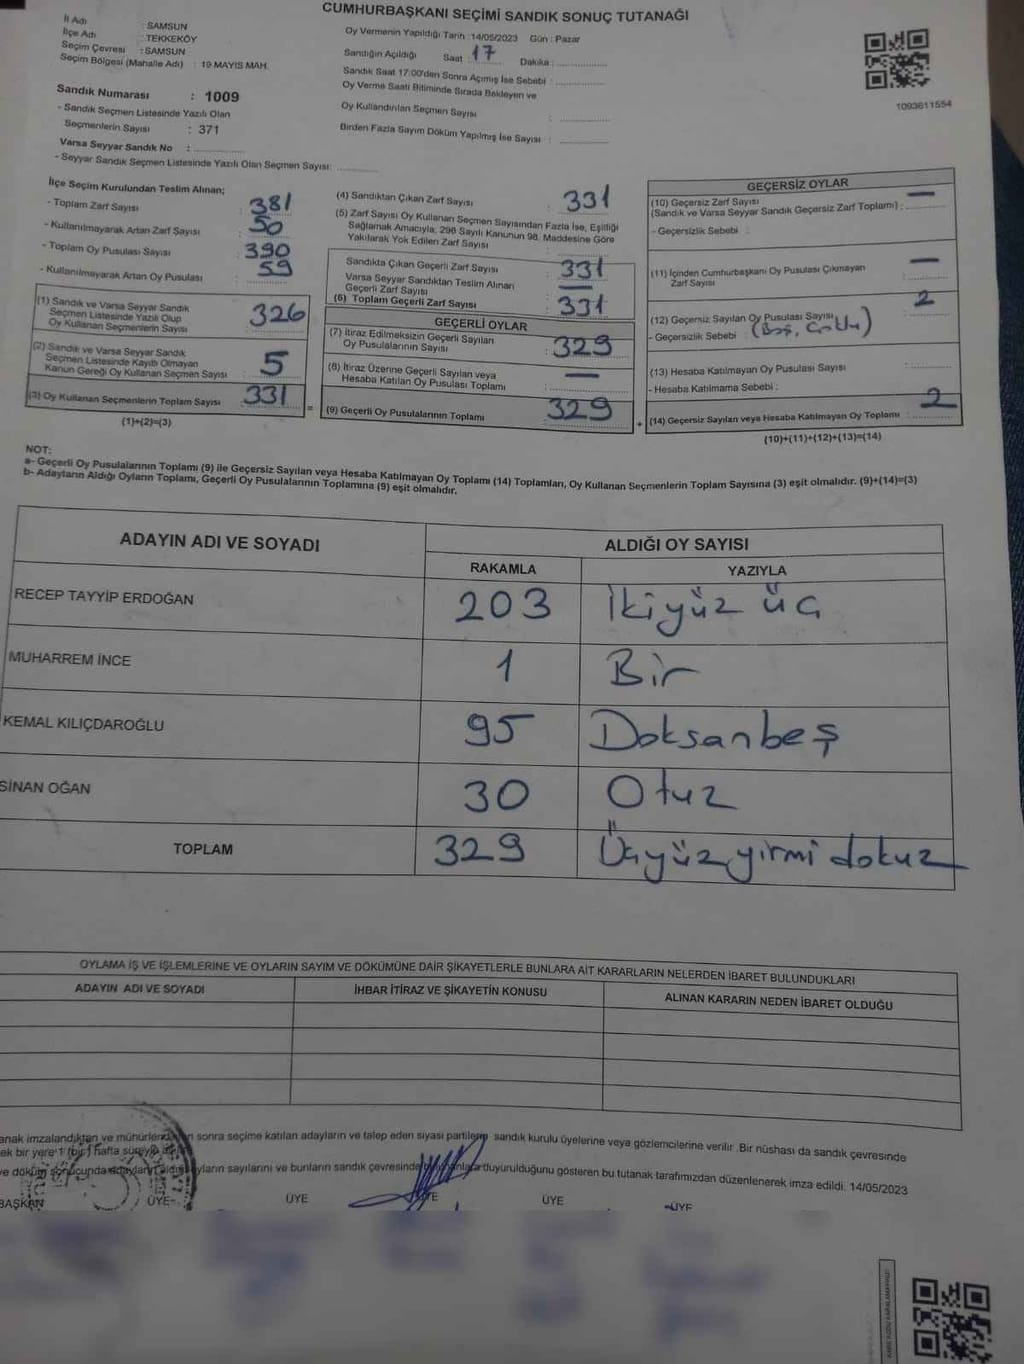 CUMHURBAŞKANI SEÇİMİ SANDIK SONUÇ TUTANAĞI
İl Adı : SAMSUN
İlçe Adı : TEKKEKÖY
Seçim Çevresi : SAMSUN
Seçim Bölgesi (Mahalle Adı) : 19 MAYIS MAH.
Sandık Numarası : 1009
- Sandık Seçmen Listesinde Yazılı Olan
Seçmenlerin Sayısı : 371
Varsa Seyyar Sandık No :
- Seyyar Sandık Seçmen Listesinde Yazılı Olan Seçmen Sayısı:
Oy Vermenin Yapıldığı Tarih :14/05/2023 Gün : Pazar
Sandığın Açıldığı Saat :17 Dakika :
Sandık Saat 17:00'den Sonra Açımış İse Sebebi :
Oy Verme Saati Bitiminde Sırada Bekleyen ve
Oy Kullandırılan Seçmen Sayısı :
Birden Fazla Sayım Döküm Yapılmış İse Sayısı :
1093611554
İlçe Seçim Kurulundan Teslim Alınan;
- Toplam Zarf Sayısı : 381
- Kullanılmayarak Artan Zarf Sayısı : 50
- Toplam Oy Pusulası Sayısı : 390
- Kullanılmayarak Artan Oy Pusulası : 59
(1) Sandık ve Varsa Seyyar Sandık
Seçmen Listesinde Yazılı Olup
Oy Kullanan Seçmenlerin Sayısı : 326
(2) Sandık ve Varsa Seyyar Sandık
Seçmen Listesinde Kayıtlı Olmayan
Kanun Gereği Oy Kullanan Seçmen Sayısı : 5
(3) Oy Kullanan Seçmenlerin Toplam Sayısı : 331
(1)+(2)=(3)
(4) Sandıktan Çıkan Zarf Sayısı : 331
(5) Zarf Sayısı Oy Kullanan Seçmen Sayısından Fazla İse, Eşitliği
Sağlamak Amacıyla, 298 Sayılı Kanunun 98. Maddesine Göre
Yakılarak Yok Edilen Zarf Sayısı :
Sandıkta Çıkan Geçerli Zarf Sayısı : 331
Varsa Seyyar Sandıktan Teslim Alınan
Geçerli Zarf Sayısı : —
(6) Toplam Geçerli Zarf Sayısı : 331
=
GEÇERLİ OYLAR
(7) İtiraz Edilmeksizin Geçerli Sayılan
Oy Pusulalarının Sayısı : 329
(8) İtiraz Üzerine Geçerli Sayılan veya
Hesaba Katılan Oy Pusulası Toplamı : —
(9) Geçerli Oy Pusulalarının Toplamı : 329
+
GEÇERSİZ OYLAR
(10) Geçersiz Zarf Sayısı
(Sandık ve Varsa Seyyar Sandık Geçersiz Zarf Toplamı) : —
- Geçersizlik Sebebi :
(11) İçinden Cumhurbaşkanı Oy Pusulası Çıkmayan
Zarf Sayısı : —
(12) Geçersiz Sayılan Oy Pusulası Sayısı : 2
- Geçersizlik Sebebi : (Boş,
(13) Hesaba Katılmayan Oy Pusulası Sayısı :
- Hesaba Katılmama Sebebi :
(14) Geçersiz Sayılan veya Hesaba Katılmayan Oy Toplamı : 2
(10)+(11)+(12)+(13)=(14)
NOT:
a- Geçerli Oy Pusulalarının Toplamı (9) ile Geçersiz Sayılan veya Hesaba Katılmayan Oy Toplamı (14) Toplamları, Oy Kullanan Seçmenlerin Toplam Sayısına (3) eşit olmalıdır. (9)+(14)=(3)
b- Adayların Aldığı Oyların Toplamı, Geçerli Oy Pusulalarının Toplamına (9) eşit olmalıdır.
ADAYIN ADI VE SOYADI ALDIĞI OY SAYISI
RAKAMLA YAZIYLA
RECEP TAYYİP ERDOĞAN 203 İkiyüz üç
MUHARREM İNCE 1 Bir
KEMAL KILIÇDAROĞLU 95 Doksanbeş
SİNAN OĞAN 30 Otuz
TOPLAM 329 Üçyüz yirmi dokuz
OYLAMA İŞ VE İŞLEMLERİNE VE OYLARIN SAYIM VE DÖKÜMÜNE DAİR ŞİKAYETLERLE BUNLARA AİT KARARLARIN NELERDEN İBARET BULUNDUKLARI
ADAYIN ADI VE SOYADI İHBAR İTİRAZ VE ŞİKAYETİN KONUSU ALINAN KARARIN NEDEN İBARET OLDUĞU
anak imzalandıktan ve mühürlendikten sonra seçime katılan adayların ve talep eden siyasi partilerin sandık kurulu üyelerine veya gözlemcilerine verilir. Bir nüshası da sandık çevresinde
ek bir yere 1 (bir) hafta süreyle
ve döküm sonucunda adayların aldığı oyların sayılarını ve bunların sandık çevresinde duyurulduğunu gösteren bu tutanak tarafımızdan düzenlenerek imza edildi. 14/05/2023
BAŞKAN ÜYE ÜYE ÜYE ÜYE ÜYE